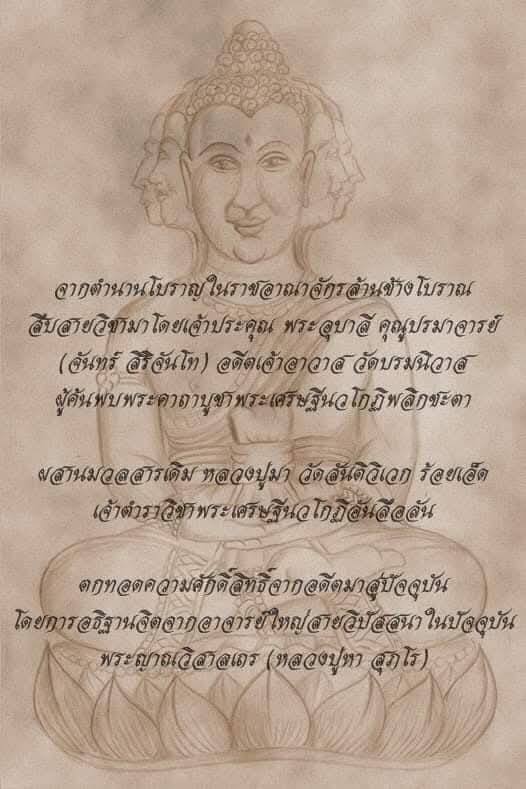 จากตำนานโบราญในราชอาณาจักรล้านช้างโบราณ
สืบสายวิชามาโดยเจ้าประคุณ พระอุบาลี คุณูปรมาจารย์
(จันทร์ สิริจันโท) อดีตเจ้าอาวาส วัดบรมนิวาส
ผู้ค้นพบพระคาถาบูชาพระเศรษฐีนวโกฏิพลิกชะตา
ผสานมวลสารเดิม หลวงปู่มา วัดสันติวิเวก ร้อยเอ็ด
เจ้าตำราวิชาพระเศรษฐีนวโกฏิอันลือลัน
ตกทอดความศักดิ์สิทธิ์จากอดีตมาสู่ปัจจุบัน
โดยการอธิฐานจิตจากอาจารย์ใหญ่สายวิปัสสนาในปัจจุบัน
พระญาณวิสาลเถร (หลวงปู่หา สุภโร)